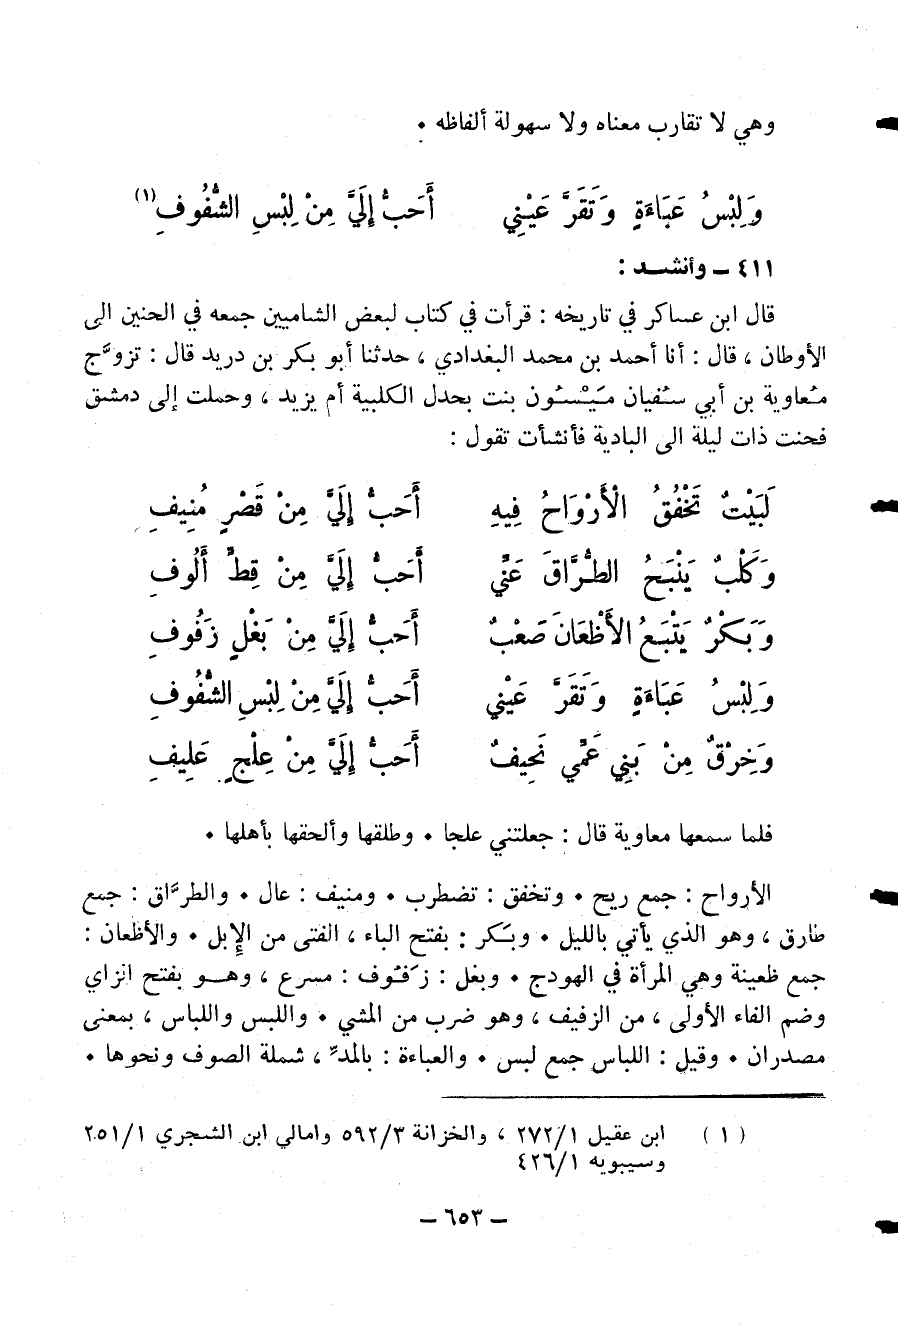 وهي لا تقارب معناه ولا سهولة ألفاظه •
وَلِبْسُ عَبَاءَةٍ وَتَقَرَّ عَيْنِي أَحَبُّ إِلَيَّ مِنْ لِبْسِ الشُّفُوفِ(١)
٤١١ – وأنشـد :
قال ابن عساكر في تاريخه : قرأت في كتاب لبعض الشاميين جمعه في الحنين الى
الأوطان ، قال : أنا أحمد بن محمد البغدادي ، حدثنا أبو بكر بن دريد قال : تزوَّج
مُعاوية بن أبي سُفيان مَيْسُون بنت بحدل الكلبية أم يزيد ، وحملت إلى دمشق
فحنت ذات ليلة الى البادية فأنشأت تقول :
لَبَيْتٌ تَخْفُقُ الْأَرْوَاحُ فِيهِ أَحَبُّ إِلَيَّ مِنْ قَصْرٍ مُنِيفِ
وَكَلْبٌ يَنْبَحُ الطُّرَّاقَ عَنِّي أَحَبُّ إِلَيَّ مِنْ قِطٍّ أَلُوفِ
وَبَكْرٌ يَتْبَعُ الأَظْعَانَ صَعْبٌ أَحَبُّ إِلَيَّ مِنْ بَغْلٍ زَفُوفِ
وَلِبْسُ عَبَاءَةٍ وَتَقَرَّ عَيْنِي أَحَبُّ إِلَيَّ مِنْ لِبْسِ الشُّفُوفِ
وَخِرْقٌ مِنْ بَنِي عَمِّي نَحِيفٌ أَحَبُّ إِلَيَّ مِنْ عِلْجٍ عَلِيفِ
فلما سمعها معاوية قال : جعلتني علجا • وطلقها وألحقها بأهلها •
الأرواح : جمع ريح • وتخفق : تضطرب • ومنيف : عال • والطرَّاق : جمع
طارق ، وهو الذي يأتي بالليل • وبَكر : بفتح الباء ، الفتى من الإبل • والأظعان :
جمع ظعينة وهي المرأة في الهودج • وبغل : زَفُوف : مسرع ، وهـو بفتح الزاي
وضم الفاء الأولى ، من الزفيف ، وهو ضرب من المشي • واللبس واللباس ، بمعنى
مصدران • وقيل : اللباس جمع لبس • والعباءة : بالمدّ ، شملة الصوف ونحوها •
( ١ ) ابن عقيل ٢٧٢/١ ، والخزانة ٥٩٢/٣ وامالي ابن الشجري ٢٥١/١
وسيبويه ٤٢٦/١
– ٦٥٣ –